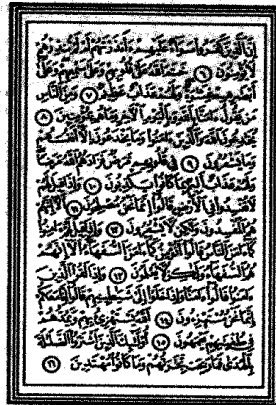 إن الذين كفروا سواء عليهم ءأنذرتهم أم لم تنذرهم
لا يؤمنون ٦ ختم الله على قلوبهم وعلى سمعهم وعلى
أبصرهم غشوة ولهم عذاب عظيم ٧ ومن الناس
من يقول ءامنا بالله وباليوم الآخر وما هم بمؤمنين ٨
يخدعون الله والذين ءامنوا وما يخدعون إلا أنفسهم
وما يشعرون ٩ في قلوبهم مرض فزادهم الله مرضا
ولهم عذاب أليم بما كانوا يكذبون ١٠ وإذا قيل لهم
لا تفسدوا في الأرض قالوا إنما نحن مصلحون ١١ ألا إنهم
هم المفسدون ولكن لا يشعرون ١٢ وإذا قيل لهم ءامنوا
كما ءامن الناس قالوا أنؤمن كما ءامن السفهاء ألا إنهم
هم السفهاء ولكن لا يعلمون ١٣ وإذا لقوا الذين
ءامنوا قالوا ءامنا وإذا خلوا إلى شيطينهم قالوا إنا معكم
إنما نحن مستهزءون ١٤ الله يستهزئ بهم ويمدهم
في طغينهم يعمهون ١٥ أولئك الذين اشتروا الضللة
بالهدى فما ربحت تجرتهم وما كانوا مهتدين ١٦